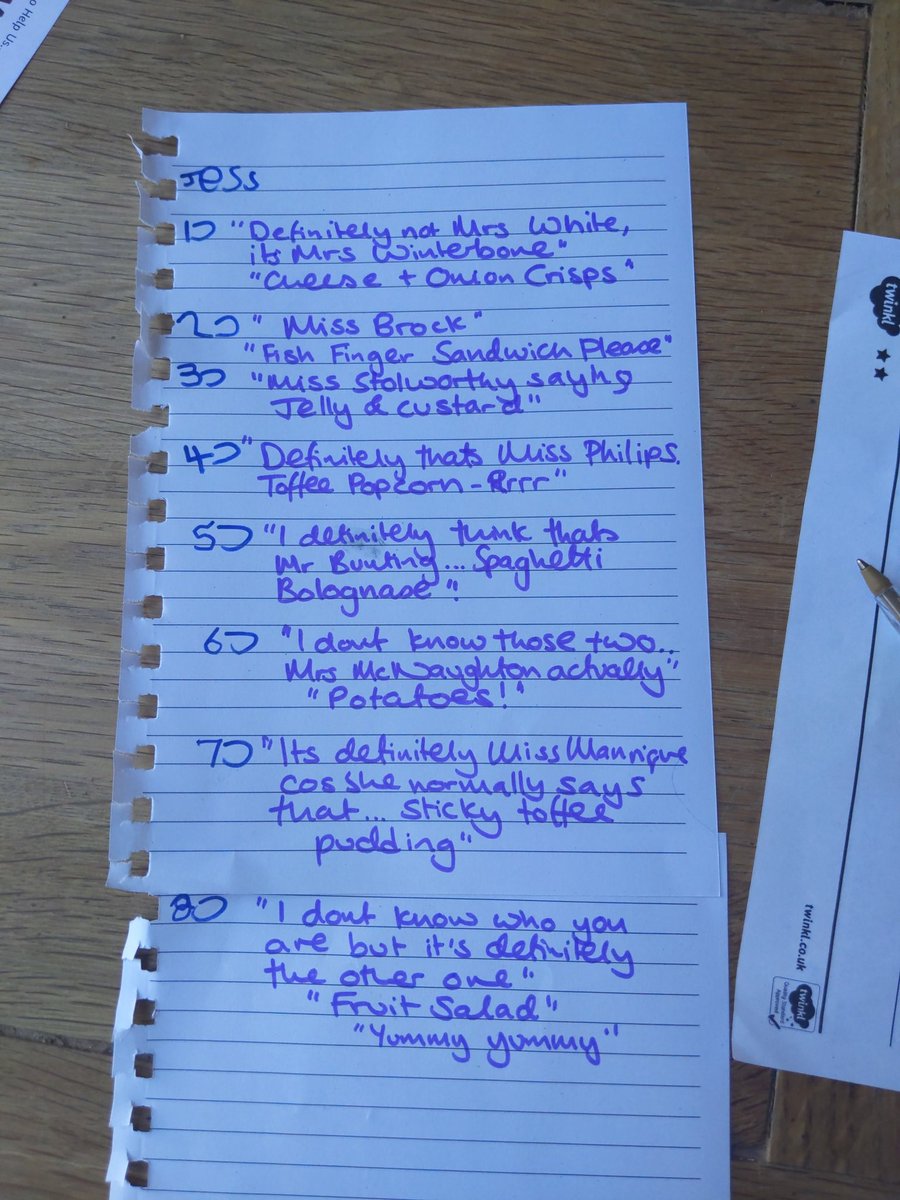 o Help Us..
Jess
1) "Definitely not Mrs White,
its Mrs Winterbone"
"Cheese + Onion Crisps"
2) "Miss Brock"
"Fish Finger Sandwich Please"
3) "Miss Stolworthy saying
Jelly & custard"
4) "Definitely thats Miss Philips.
Toffee Popcorn - Rrrr"
5) "I definitely think thats
Mr Bunting... Spaghetti
Bolognase".
6) "I dont know those two..
Mrs McNaughton actually"
"Potatoes!"
7) "Its definitely Miss Manrique
cos she normally says
that... sticky toffee
pudding"
8) "I dont know who you
are but it's definitely
the other one"
"Fruit Salad"
"Yummy yummy"
twinkl
twinkl.co.uk
twinkl
Quality Standard
Approved